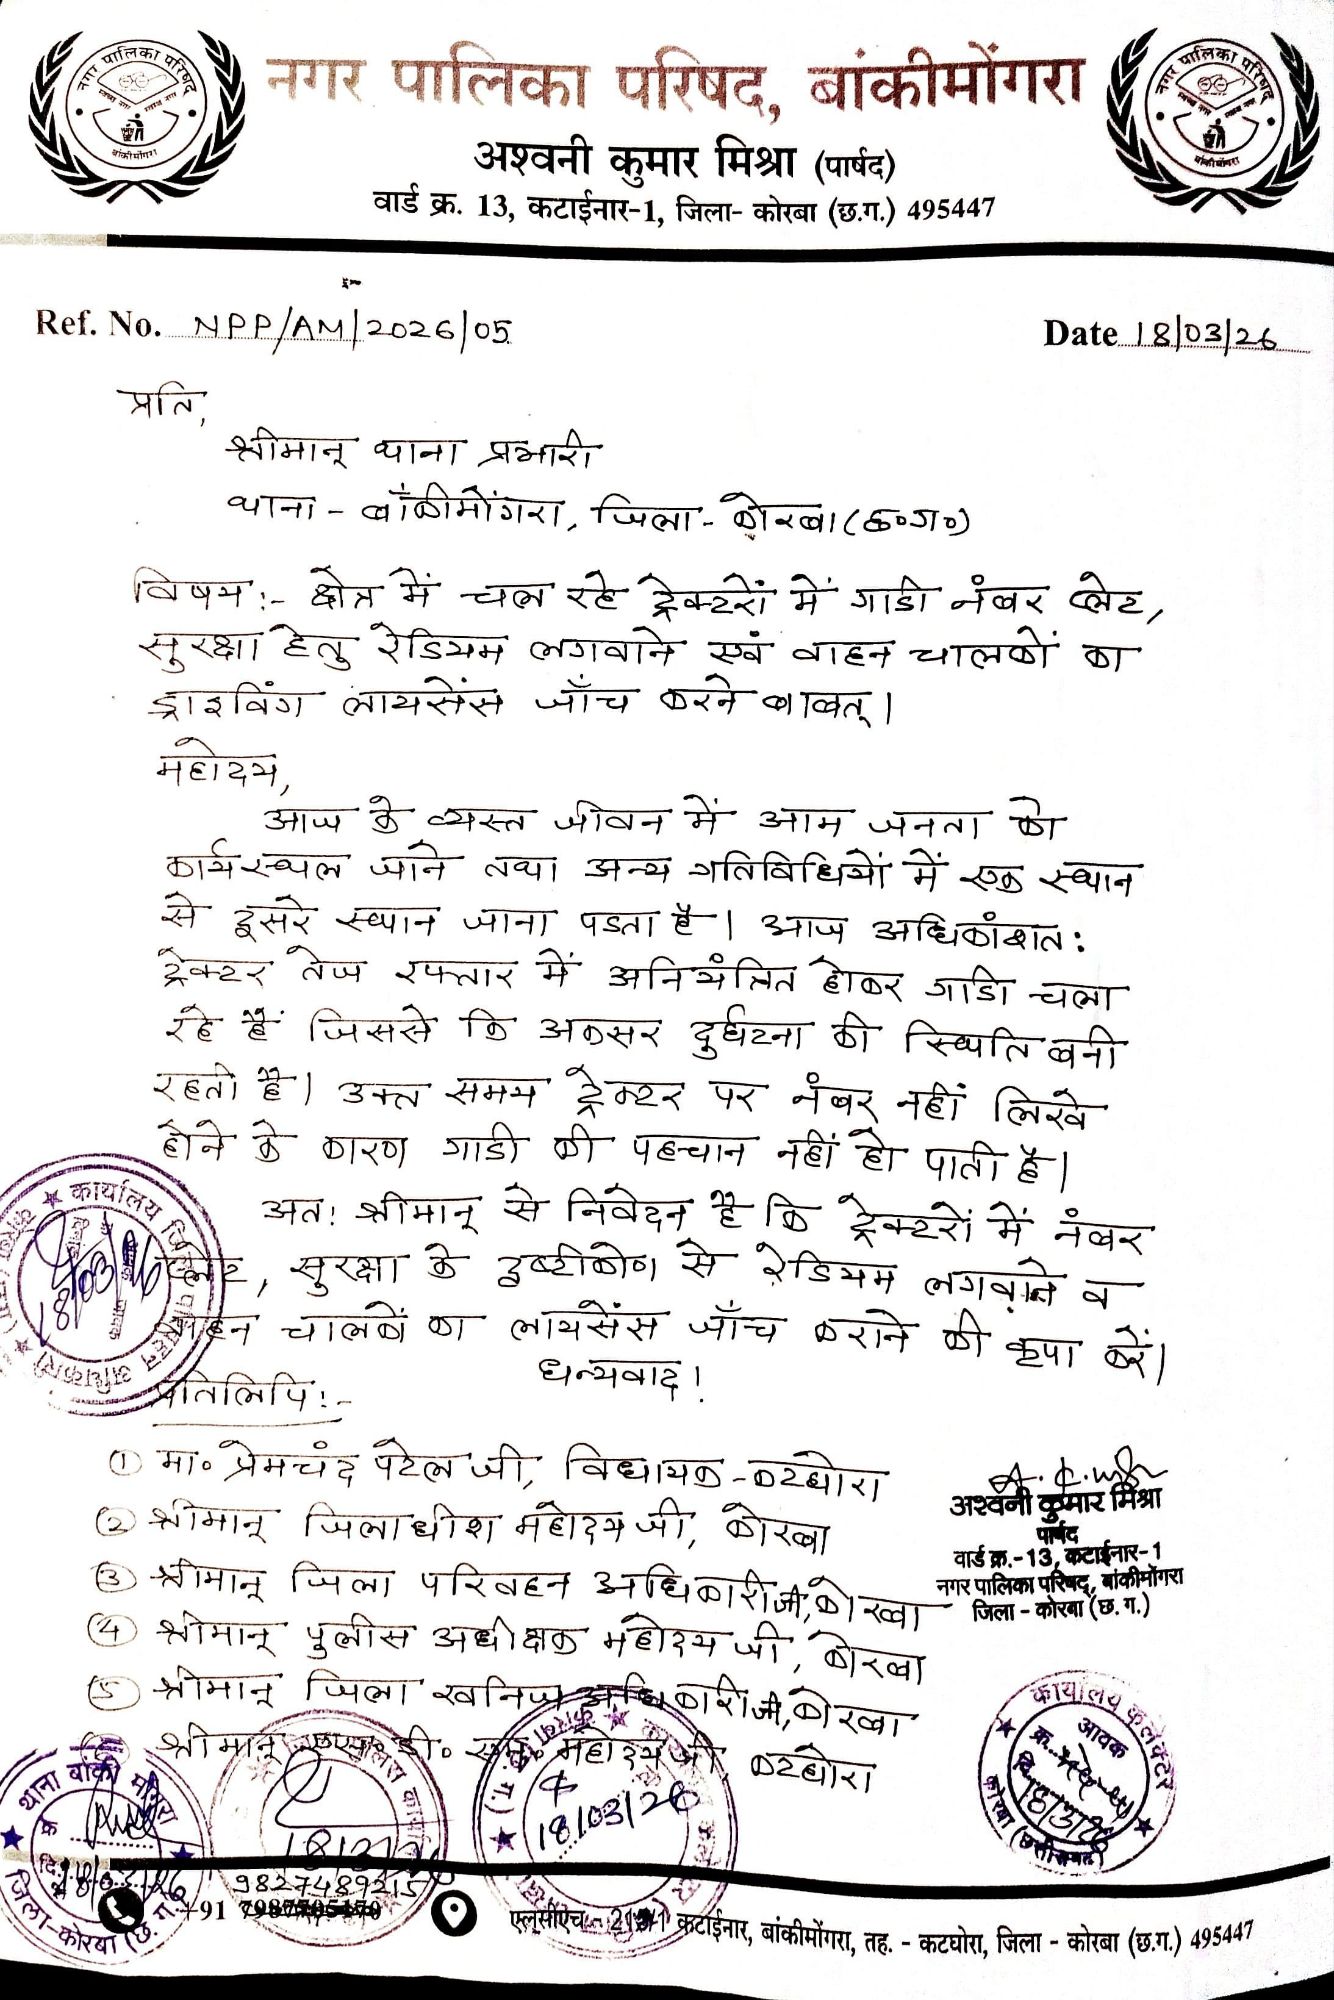 नगर पालिका परिषद, बांकीमोंगरा
अश्वनी कुमार मिश्रा (पार्षद)
वार्ड क्र. 13, कटाईनार-1, जिला- कोरबा (छ.ग.) 495447
नगर पालिका परिषद
बांकीमोंगरा
नगर पालिका परिषद
बांकीमोंगरा
Ref. No. NPP/AM/2026/05
Date 18/03/26
प्रति,
श्रीमान् थाना प्रभारी
थाना - बाँकीमोंगरा, जिला - कोरबा (छ०ग०)
विषय :- क्षेत्र में चल रहे ट्रेक्टरों में गाडी नंबर प्लेट,
सुरक्षा हेतु रेडियम लगवाने एवं वाहन चालकों का
ड्राइविंग लायसेंस जाँच करने बाबत्।
महोदय,
आज के व्यस्त जीवन में आम जनता को
कार्यस्थल जाने तथा अन्य गतिविधियों में एक स्थान
से दूसरे स्थान जाना पडता है। आज अधिकांशत:
ट्रेक्टर तेज रफ्तार में अनियंत्रित होकर गाडी चला
रहे हैं जिससे कि अक्सर दुर्घटना की स्थिति बनी
रहती है। उक्त समय ट्रेक्टर पर नंबर नहीं लिखे
होने के कारण गाडी की पहचान नहीं हो पाती है।
अत: श्रीमान् से निवेदन है कि ट्रेक्टरों में नंबर
प्लेट, सुरक्षा के दृष्टीकोण से रेडियम लगवाने व
वाहन चालकों का लायसेंस जाँच कराने की कृपा करें।
धन्यवाद!
प्रतिलिपि :-
① मा० प्रेमचंद पटेल जी, विधायक - कटघोरा
② श्रीमान् जिलाधीश महोदय जी, कोरबा
③ श्रीमान् जिला परिवहन अधिकारी जी, कोरबा
④ श्रीमान् पुलीस अधीक्षक महोदय जी, कोरबा
⑤ श्रीमान् जिला खनिज अधिकारी जी, कोरबा
श्रीमान् एस० डी० एम० महोदय जी कटघोरा
अश्वनी कुमार मिश्रा
पार्षद
वार्ड क्र.-13, कटाईनार-1
नगर पालिका परिषद, बांकीमोंगरा
जिला - कोरबा (छ. ग.)
कार्यालय जिला परिवहन अधिकारी
18/03/26
थाना बांकी मोंगरा
जिला-कोरबा (छ. ग.)
18/03/26
कार्यालय कलेक्टर
आवक
18/3/26
कोरबा (छत्तीसगढ़)
9827489215
+91
एल्सीएच - कटाईनार, बांकीमोंगरा, तह. - कटघोरा, जिला - कोरबा (छ.ग.) 495447